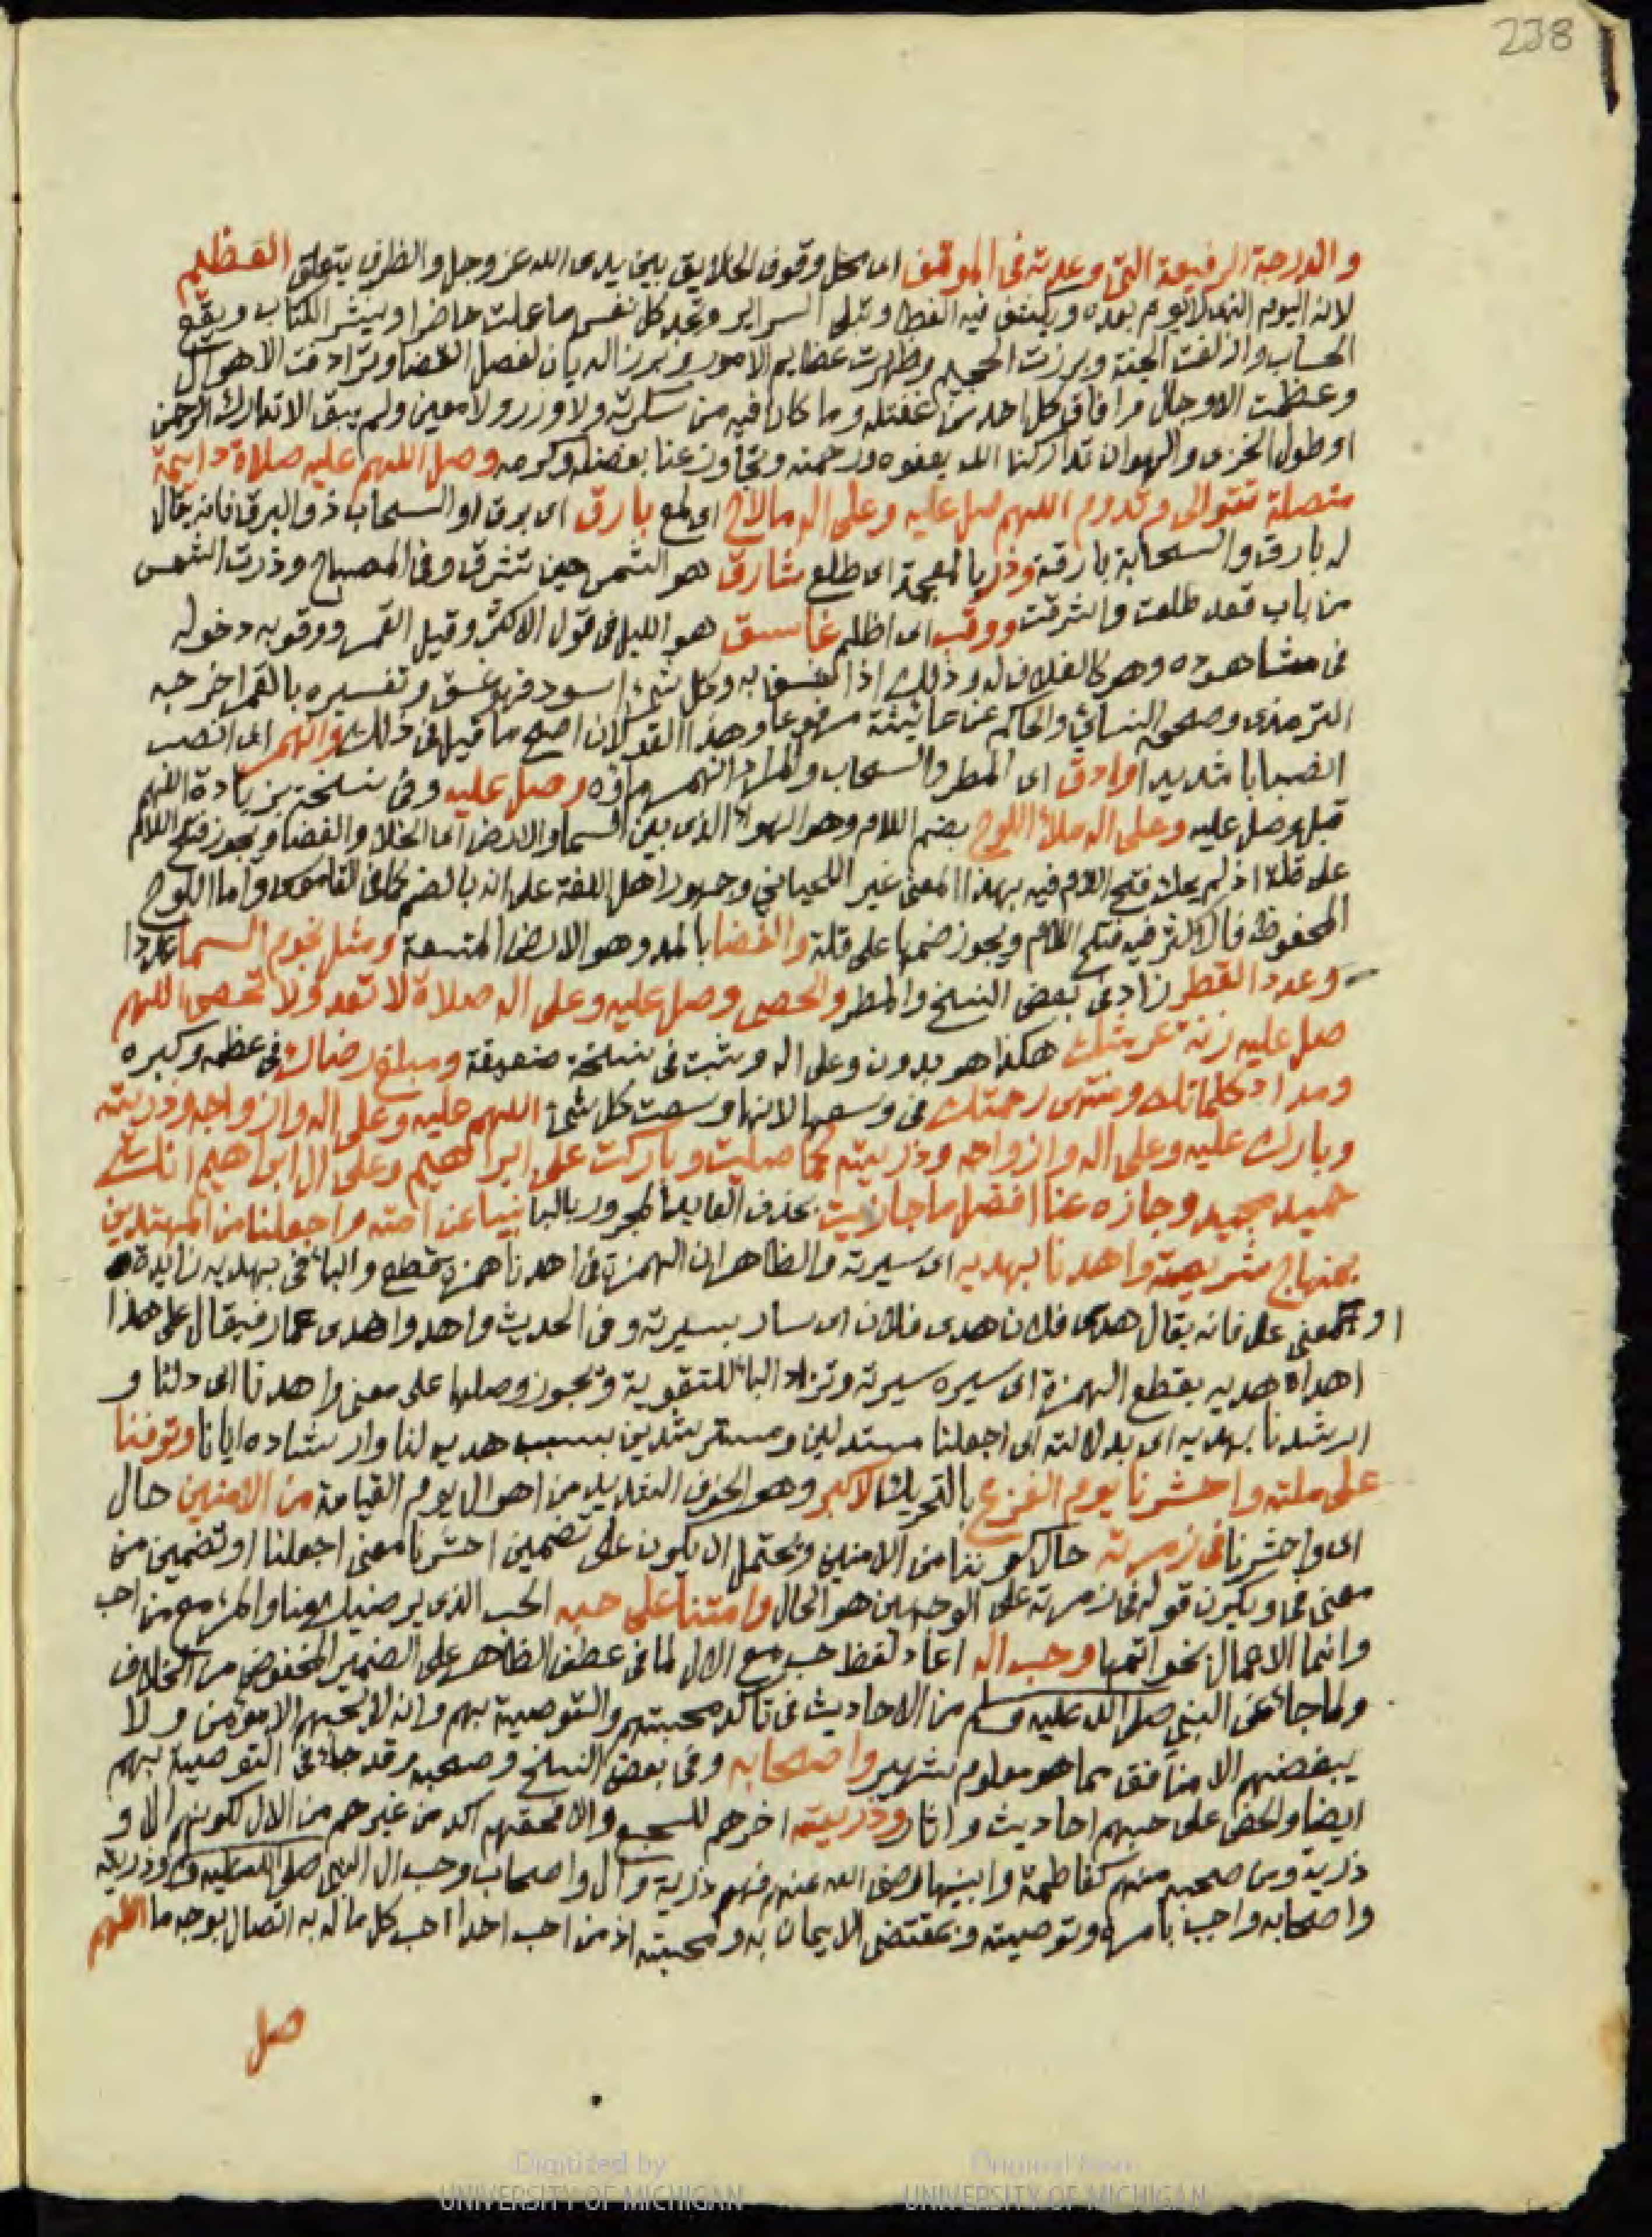 238
والدرجة الرفيعة التي وعدته في الموقف اى محل وقوف الخلايق بين يدى الله عز وجل والظرف يتعلق العظيم
لانه اليوم الذى لا يوم بعده ويكشف فيه الغطا وتبلى السراير وتجد كل نفس ما عملت حاضرا وينشر الكتاب ويقع
الحساب وازلفت الجنة وبرزت الجحيم وظهرت عظايم الامور وبرز الديان لفصل القضا وترادفت الاهوال
وعظمت الاوجال وافاق كل احد من غفلته وما كان فيه من سكرته ولا وزر ولا معين ولم يبق الا تدارك الرحمن
او طول الخزى والهوان تداركنا الله بعفوه ورحمته وتجاوز عنا بفضله وكرمه وصل اللهم عليه صلاة دايمة
متصلة تتوالى وتدوم اللهم صل عليه وعلى اله مالاح اى لمع بارق اى برق او السحاب ذو البرق فانه يقال
له بارق والسحابة بارقة وذر بالمعجمة اى طلع شارق هو الشمس حين تشرق وفى المصباح وذرت الشمس
من باب قعد طلعت واشرقت ووقب اى اظلم غاسق هو الليل في قول الاكثر وقيل القمر ووقوبه دخوله
فى مشاهوده وهو كالغلاف له وذلك اذا كسف به وكل شئ اسود فهو غسق وتفسيره بالقمر اخرجه
الترمذى وصححه النسائي والحاكم عن عايشة مرفوعا وهذا القول اصح ما قيل فى ذلك وانهمر اى انصب
انصبابا شديدا وادق اى المطر والسحاب والمراد انهمر ماؤه وصل عليه وفى نسخة بزيادة اللهم
قبل وصل عليه وعلى اله ملأ اللوح بضم اللام وهو الهواء الذى بين السما والارض اى الخلا والفضا ويجوز فتح اللام
على قلة اذ لم يحك فتح اللام فيه بهذا المعنى غير اللحيانى وجمهور اهل اللغة على انه بالضم كما فى القاموس واما اللوح
المحفوظ فالاكثر فيه فتح اللام ويجوز ضمها على قلة والفضا بالمد وهو الارض المتسعة ومثل نجوم السما عددا
وعدد القطر زاد فى بعض النسخ والمطر والحصى وصل عليه وعلى اله صلاة لا تعد ولا تحصى اللهم
صل عليه زنة عرشك هكذا هو بدون وعلى اله وثبت فى نسخة ضعيفة ومبلغ رضاك فى عظمه وكبره
ومداد كلماتك ومنتهى رحمتك فى وسعها لانها وسعت كل شئ اللهم عليه وعلى اله وازواجه وذريته
وبارك عليه وعلى اله وازواجه وذريته كما صليت وباركت على ابراهيم وعلى ال ابراهيم انك
حميد مجيد وجازه عنا افضل ما جازيت بحذف العايد المجرور بالبا نبيا عن امته واجعلنا من المهتدين
بمنهاج شريعته واهدنا بهديه اى سيرته والظاهر ان الهمزة فى اهدنا همزة قطع والبا فى بهديه زايدة
او بمعنى على فانه يقال هدى فلان هدى فلان اى سار بسيرته وفى الحديث واهدوا هدى عمار فيقال على هذا
اهداه هديه بقطع الهمزة اى سيره سيرته وتزاد البا للتقوية ويجوز وصلها على معنى واهدنا اى دلنا و
ارشدنا بهديه اى بدلالته اى اجعلنا مستدلين ومسترشدين بسبب هديه لنا وارشاده ايانا وتوفنا
على ملته واحشرنا يوم الفزع بالتحريك الاكبر وهو الخوف الشديد من اهوال يوم القيامة من الامنين حال
اى واحشرنا فى زمرته حال كوننا من الامنين ويحتمل ان يكون على تضمين احشرنا معنى اجعلنا او تضمين من
معنى فى ويكون قوله فى زمرته على الوجهين هو الحال وامتنا على حبه الحب الذى يرضيك عنا والمرء مع من احب
وانما الاعمال بخواتمها وحب اله اعاد لفظ حب مع الال لما فى عطف الظاهر على الضمير المخفوض من الخلاف
ولما جا عن النبى صلى الله عليه وسلم من الاحاديث فى تاكد محبتهم والتوصية بهم وانه لا يحبهم الا مؤمن ولا
يبغضهم الا منافق مما هو معلوم شهير واصحابه وفى بعض النسخ وصحبه وقد جا فى التوصية بهم
ايضا والحض على حبهم احاديث واثار وذريته اخرهم للسجع والا فحقهم اكد من غيرهم من الال لكونهم الا و
ذرية ومن صحبه منهم كفاطمة وابنيها رضى الله عنهم فهم ذرية وال واصحاب وحب ال النبى صلى الله عليه وسلم وذريته
واصحابه واجب بامره وتوصيته وبمقتضى الايمان به ومحبته اذ من احب احدا احب كل ما له به اتصال بوجه ما اللهم
صل
Digitized by
UNIVERSITY OF MICHIGAN
Original from
UNIVERSITY OF MICHIGAN